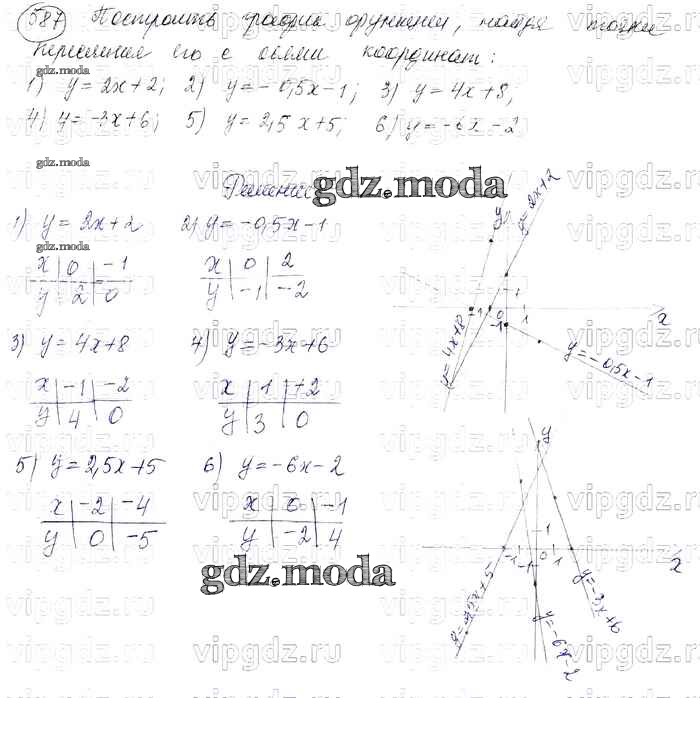 587 Построить график функции, найдя точки
пересечения его с осями координат:
gdz.moda
1) y = 2x+2; 2) y = -0,5x-1; 3) y = 4x+8;
4) y = -3x+6; 5) y = 2,5x+5; 6) y = -6x-2
gdz.moda
Решение
gdz.moda
1) y = 2x+2 2) y = -0,5x-1
gdz.moda
x 0 -1
y 2 0
x 0 2
y -1 -2
3) y = 4x+8 4) y = -3x+6
x -1 -2
y 4 0
x 1 +2
y 3 0
5) y = 2,5x+5 6) y = -6x-2
x -2 -4
y 0 -5
x 0 -1
y -2 4
gdz.moda
y
y=2x+2
1
-1 0 1
-1
x
y=4x+8
y=-0,5x-1
y
1
-1 0 1
-1
x
y=2,5x+5
y=-6x-2
y=-3x+6
vipgdz.ru